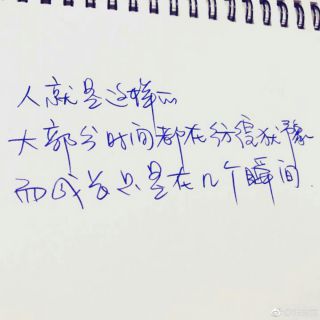 人就是这样的
大部分时间都在彷徨犹豫
而成长只是在几个瞬间.